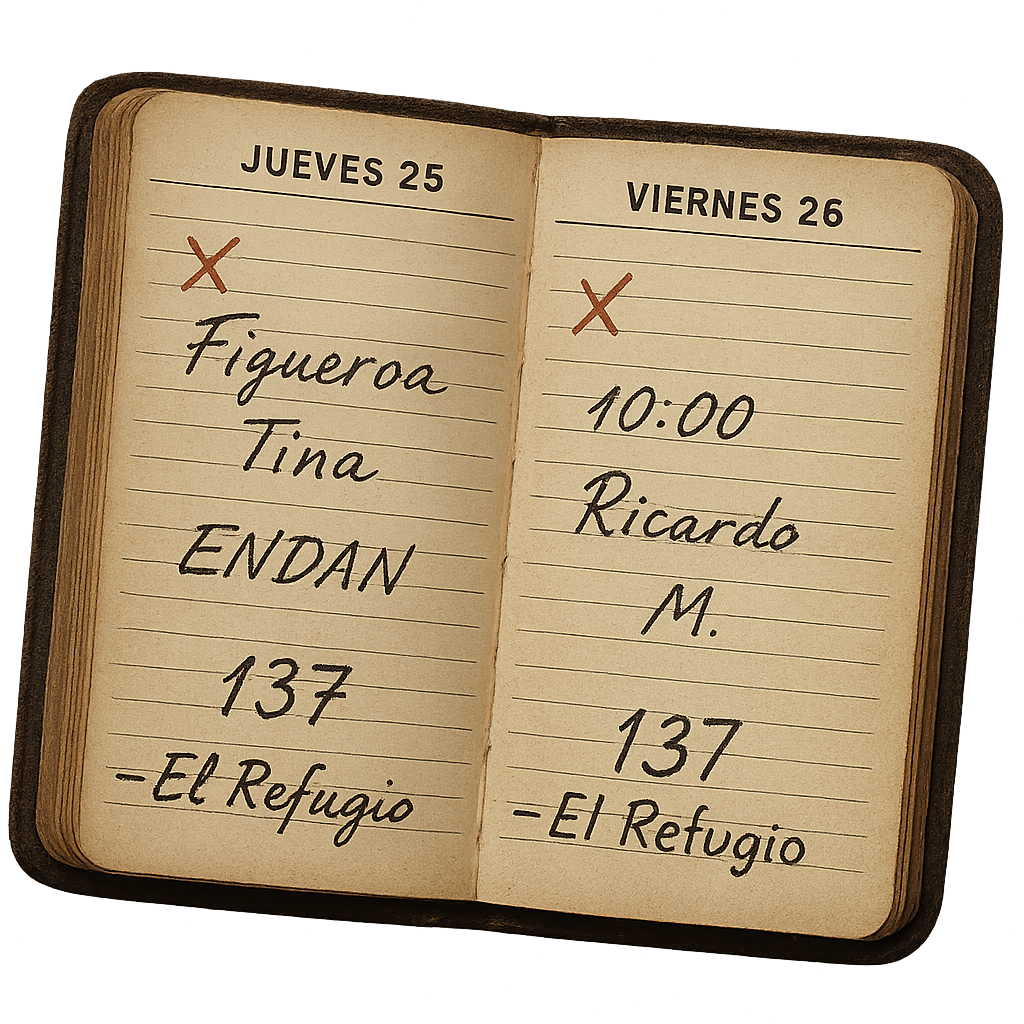 JUEVES 25
X
Figueroa
Tina
ENDAN
137
-El Refugio
VIERNES 26
X
10:00
Ricardo
M.
137
-El Refugio